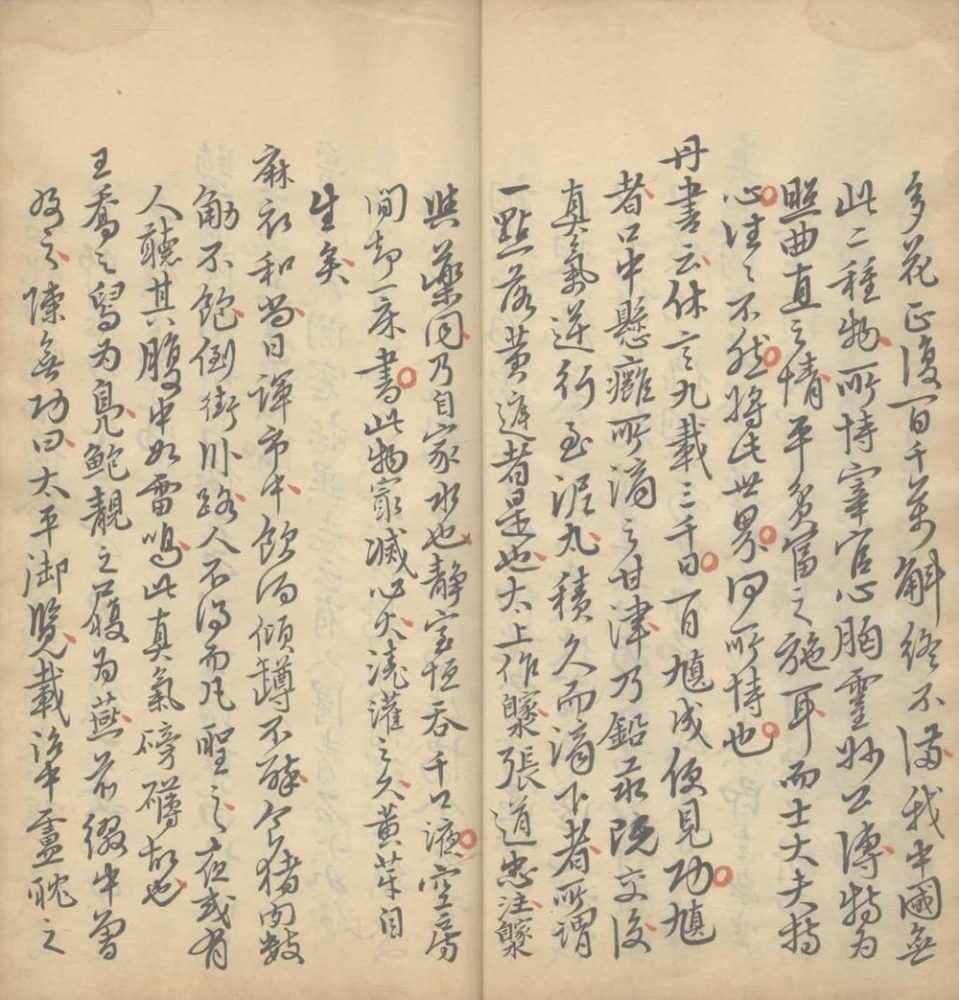 多花正復百千萬斛終不滿我中國無
此二種物所恃宰官心胸靈妙公溥特為
照曲直之情平貧富之施耳而士大夫持
心往之不然將此世界何所恃也
丹書云休言九載三千日百馗成便見功馗
者口中懸癰所滴之甘津乃鉛汞既交後
真氣逆行至泥丸積久而滴下者所謂
一點落黃庭者是也太上作 張道忠注
與藥同乃自家水也靜室恒吞千口液空房
閒卻一床書此物最滅心火澆灌之久黃芽自
生矣
麻衣和尚日譁市中飲酒傾罇不醉食豬肉數
觔不飽倒街臥路人不得而凡聖之夜或有
人聽其腹中如雷鳴此真氣磅礡故也
王喬之舄為鳧鮑靚之履為燕前綴中曾
及之陳無功曰太平御覽載治中盧耽之